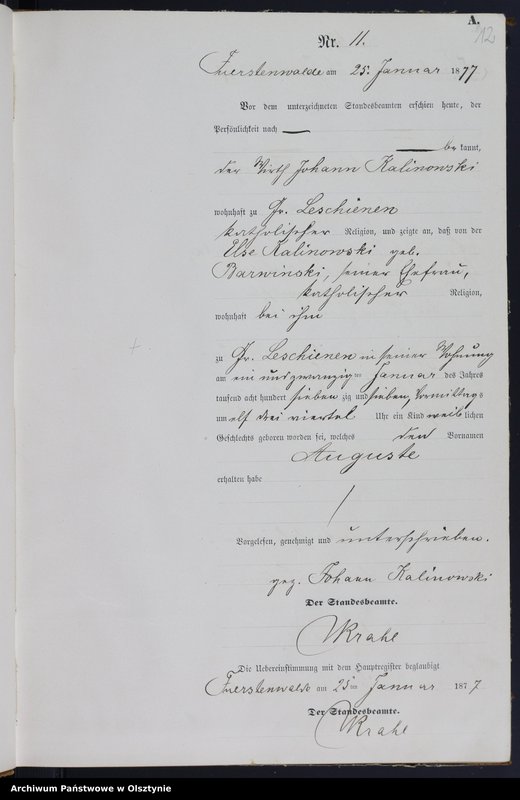 A.
12
Nr. 11.
Fuerstenwalde am 25. Januar 1877
Vor dem unterzeichneten Standesbeamten erschien heute, der
Persönlichkeit nach —
— be kannt,
der Wirth Johann Kalinowski
wohnhaft zu Gr. Leschienen
katholischer Religion, und zeigte an, daß von der
Else Kalinowski geb.
Barwinski, seiner Ehefrau,
katholischer Religion,
wohnhaft bei ihm
zu Gr. Leschienen in seiner Wohnung
am ein und zwanzig ten Januar des Jahres
tausend acht hundert sieben zig und sieben, Vormittags
um elf drei viertel Uhr ein Kind weib lichen
Geschlechts geboren worden sei, welches den Vornamen
Auguste
erhalten habe
Vorgelesen, genehmigt und unterschrieben.
gez. Johann Kalinowski
Der Standesbeamte.
Krahl
Die Uebereinstimmung mit dem Hauptregister beglaubigt
Fuerstenwalde am 25ten Januar 1877
Der Standesbeamte.
Krahl
Archiwum Państwowe w Olsztynie